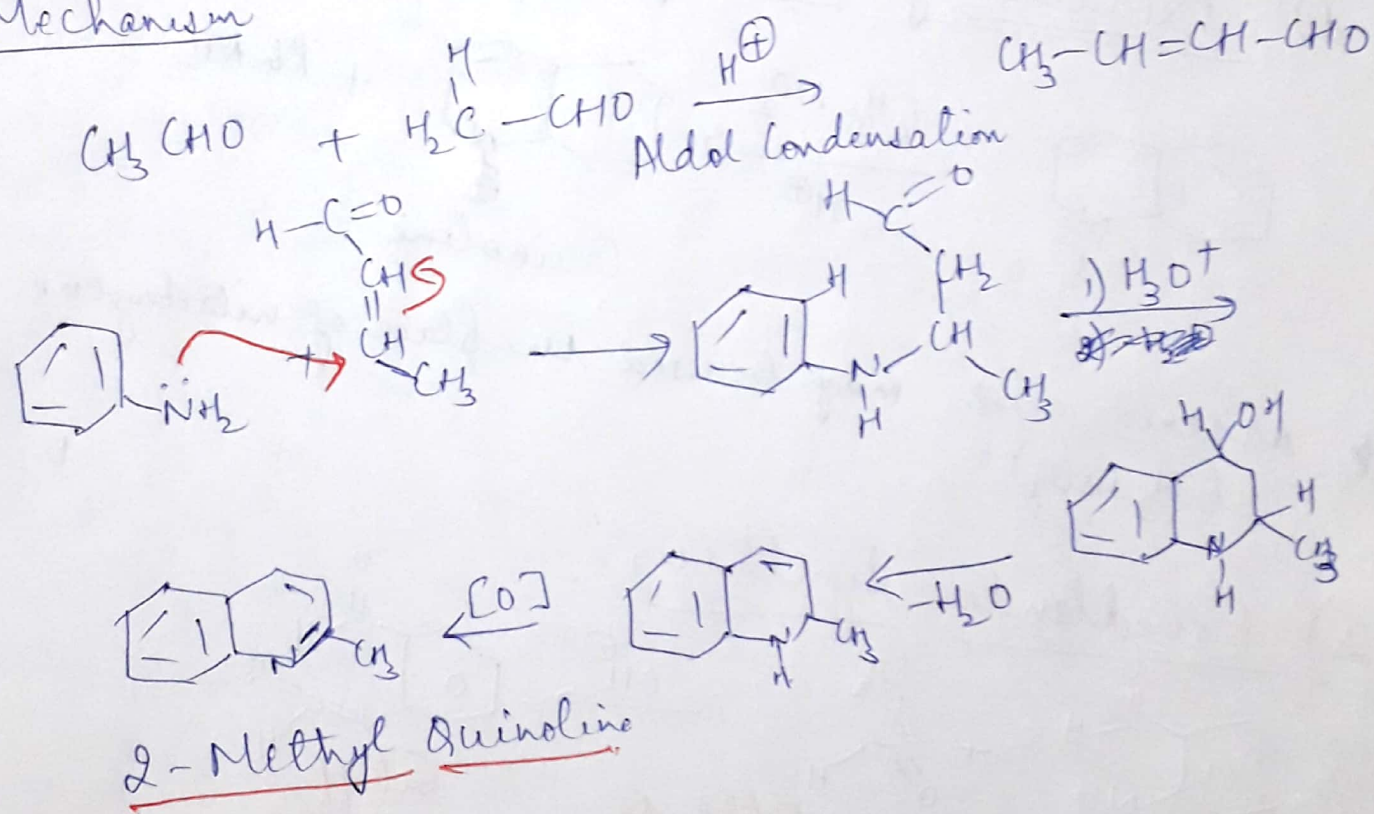 Mechanism
CH3 CHO + H2C(H)-CHO H⊕ Aldol Condensation CH3-CH=CH-CHO
H-C=O
CH
CH
CH3
NH2
+
H C=O
CH2
H
CH
N
H
CH3
1) H3O+
H OH
H
CH3
N
H
-H2O
N
H
CH3
[O]
N
CH3
2-Methyl Quinoline